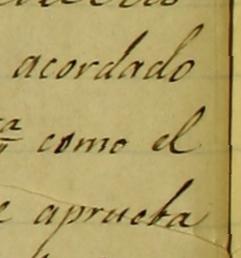 acordado
como el
aprueba